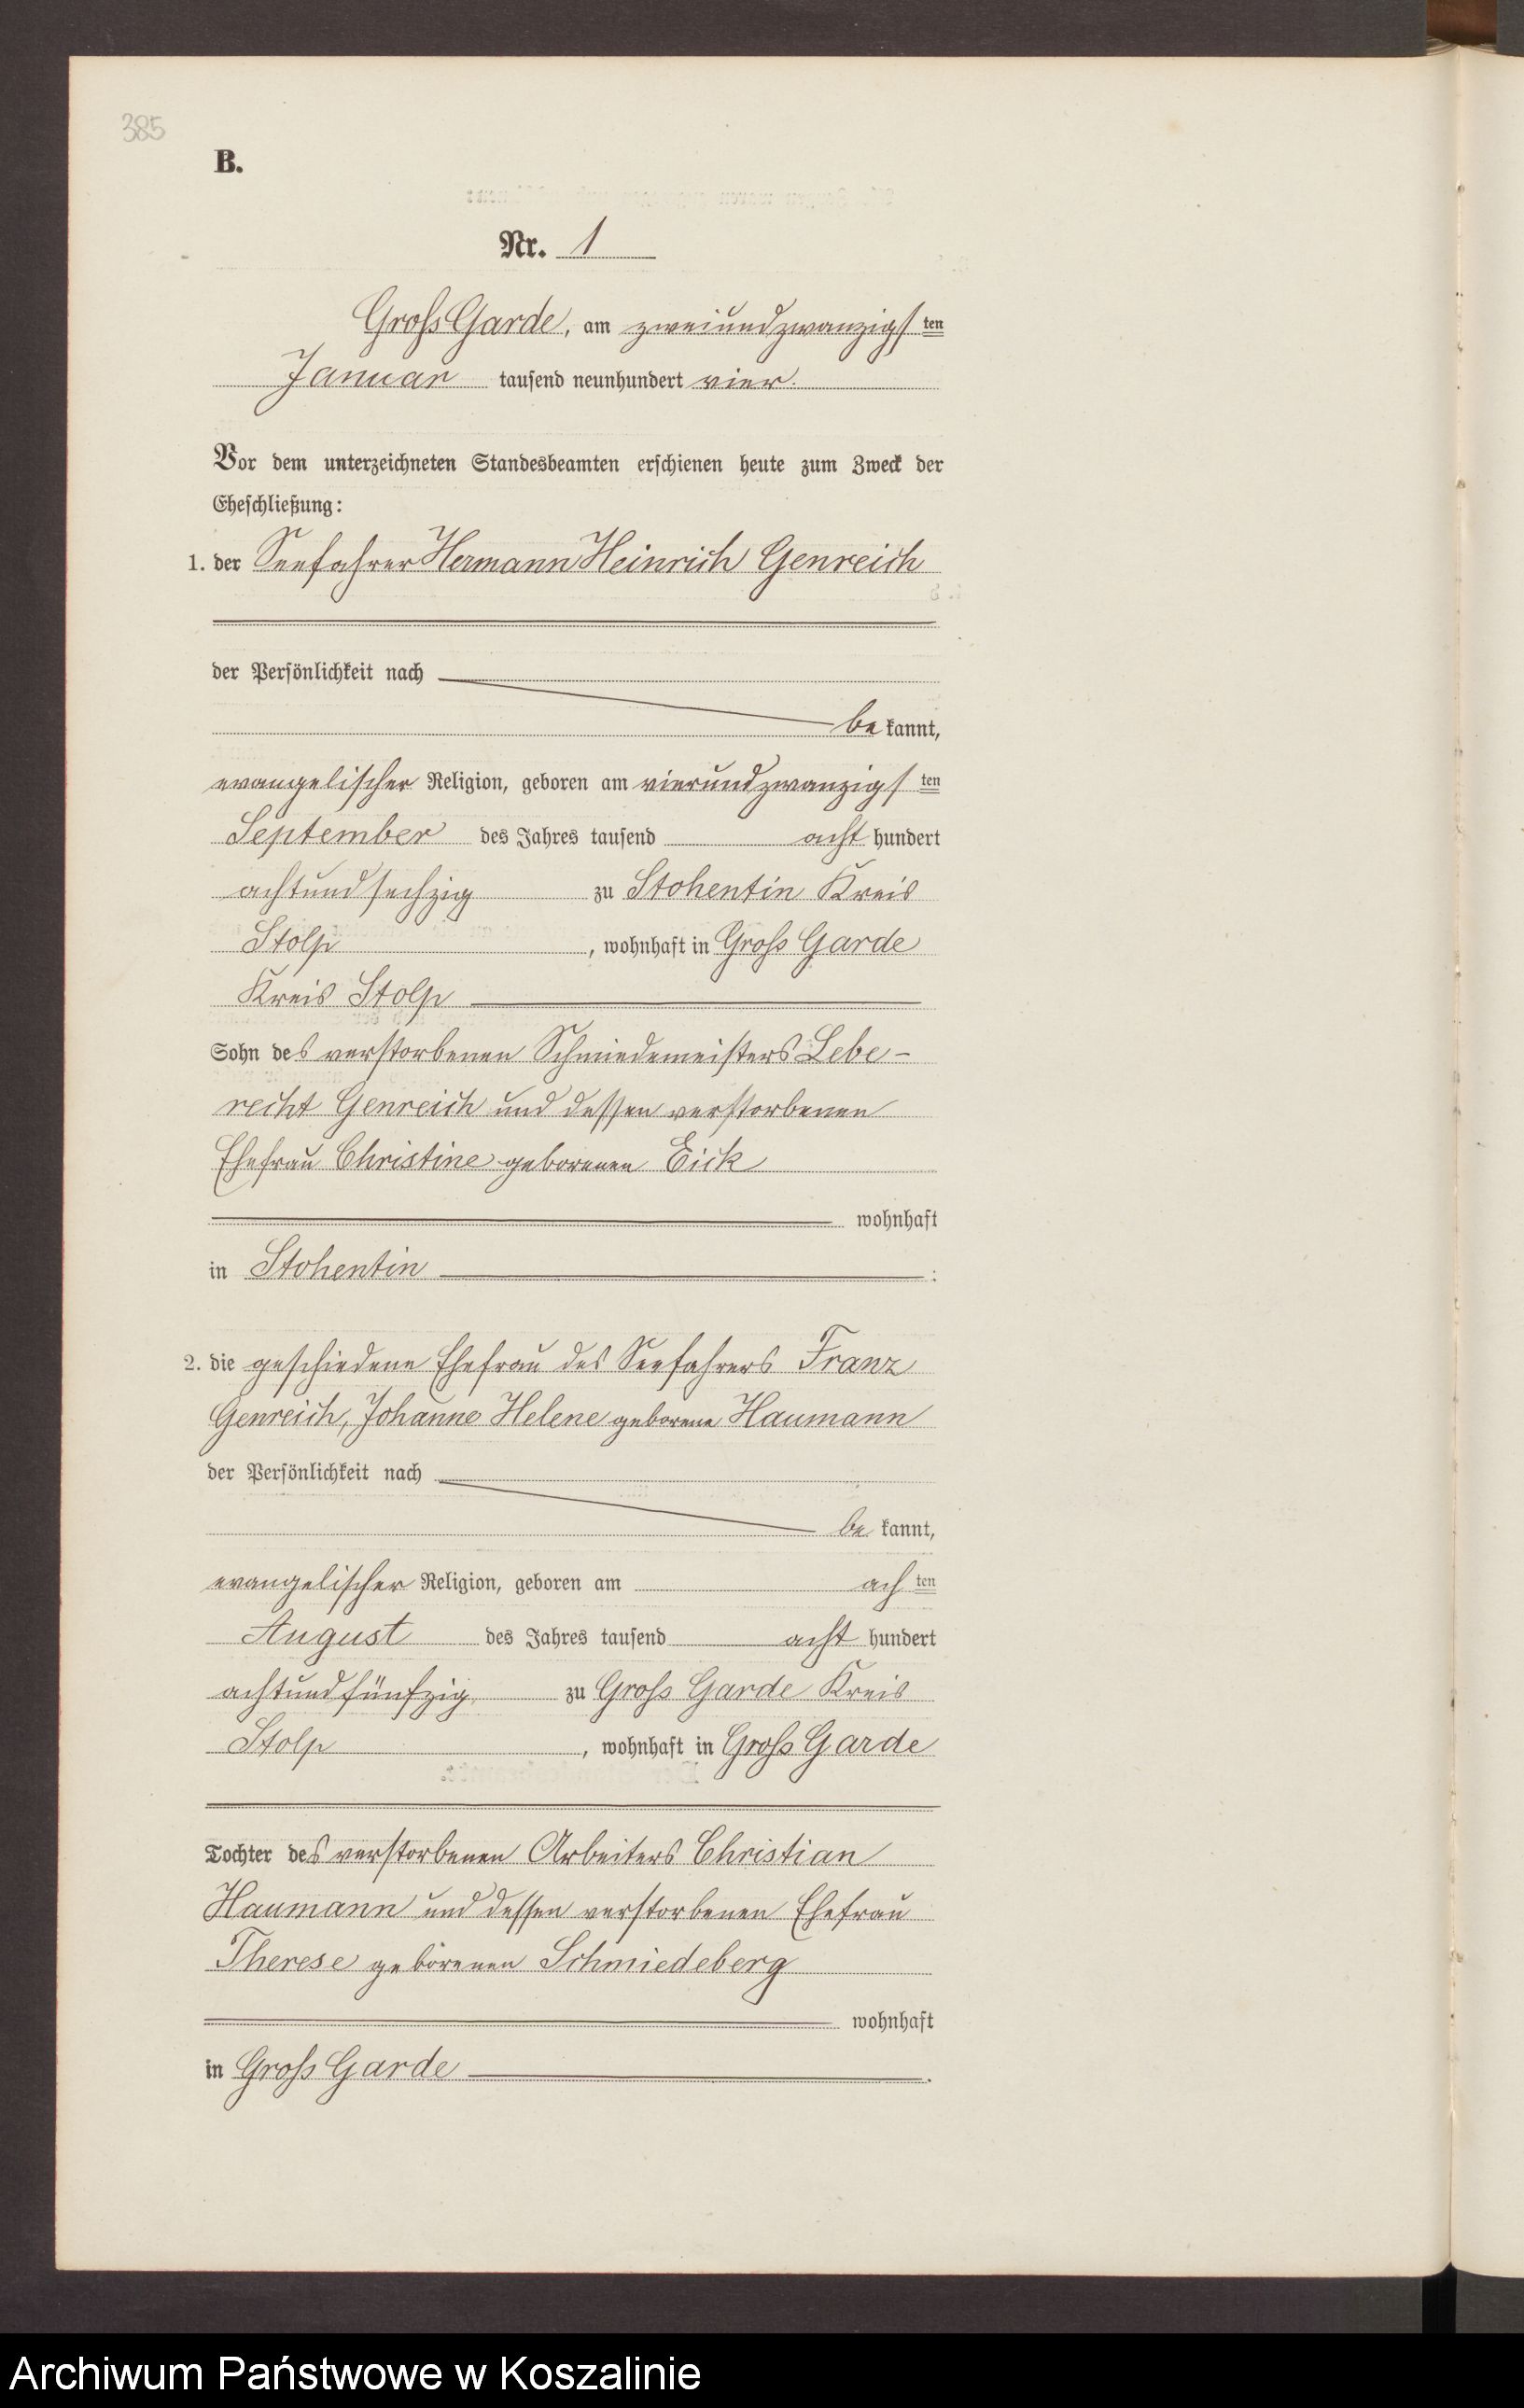 385
B.
Nr. 1
Gross Garde, am zweiundzwanzigsten
Januar tausend neunhundert vier.
Vor dem unterzeichneten Standesbeamten erschienen heute zum Zweck der
Eheschließung:
1. der Seefahrer Hermann Heinrich Genreich
der Persönlichkeit nach
be kannt,
evangelischer Religion, geboren am vierundzwanzigsten
September des Jahres tausend acht hundert
achtundsechzig zu Stohentin Kreis
Stolp, wohnhaft in Gross Garde
Kreis Stolp
Sohn des verstorbenen Schmiedemeisters Lebe-
recht Genreich und dessen verstorbenen
Ehefrau Christine geborenen Eick
wohnhaft
in Stohentin :
2. die geschiedene Ehefrau des Seefahrers Franz
Genreich, Johanne Helene geborene Haumann
der Persönlichkeit nach
be kannt,
evangelischer Religion, geboren am achten
August des Jahres tausend acht hundert
achtundfünfzig zu Gross Garde Kreis
Stolp, wohnhaft in Gross Garde
Tochter des verstorbenen Arbeiters Christian
Haumann und dessen verstorbenen Ehefrau
Therese geborenen Schmiedeberg
wohnhaft
in Gross Garde .
Archiwum Państwowe w Koszalinie